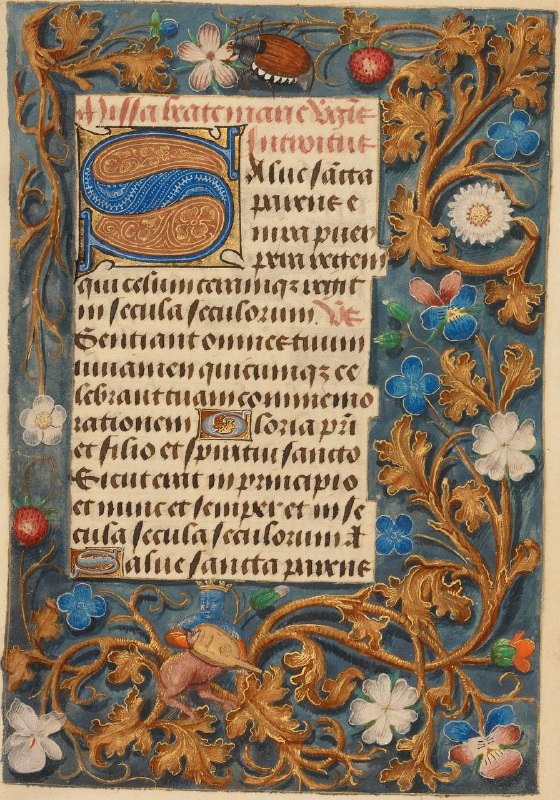 Missa beate marie v̉gīs
Introitus
Salue sācta
parens e
nixa puer
pera regem
qui celum terramqȝ regit
in secula seculorum. Vs
Sentiant omnes tuum
iuuamen quicumqȝ ce
lebrant tuam commemo
rationem Gloria pr̄i
et filio et spiritui sancto
Sicut erat in principio
et nunc et semper et in se
cula secula seculorum A
Salue sancta parens